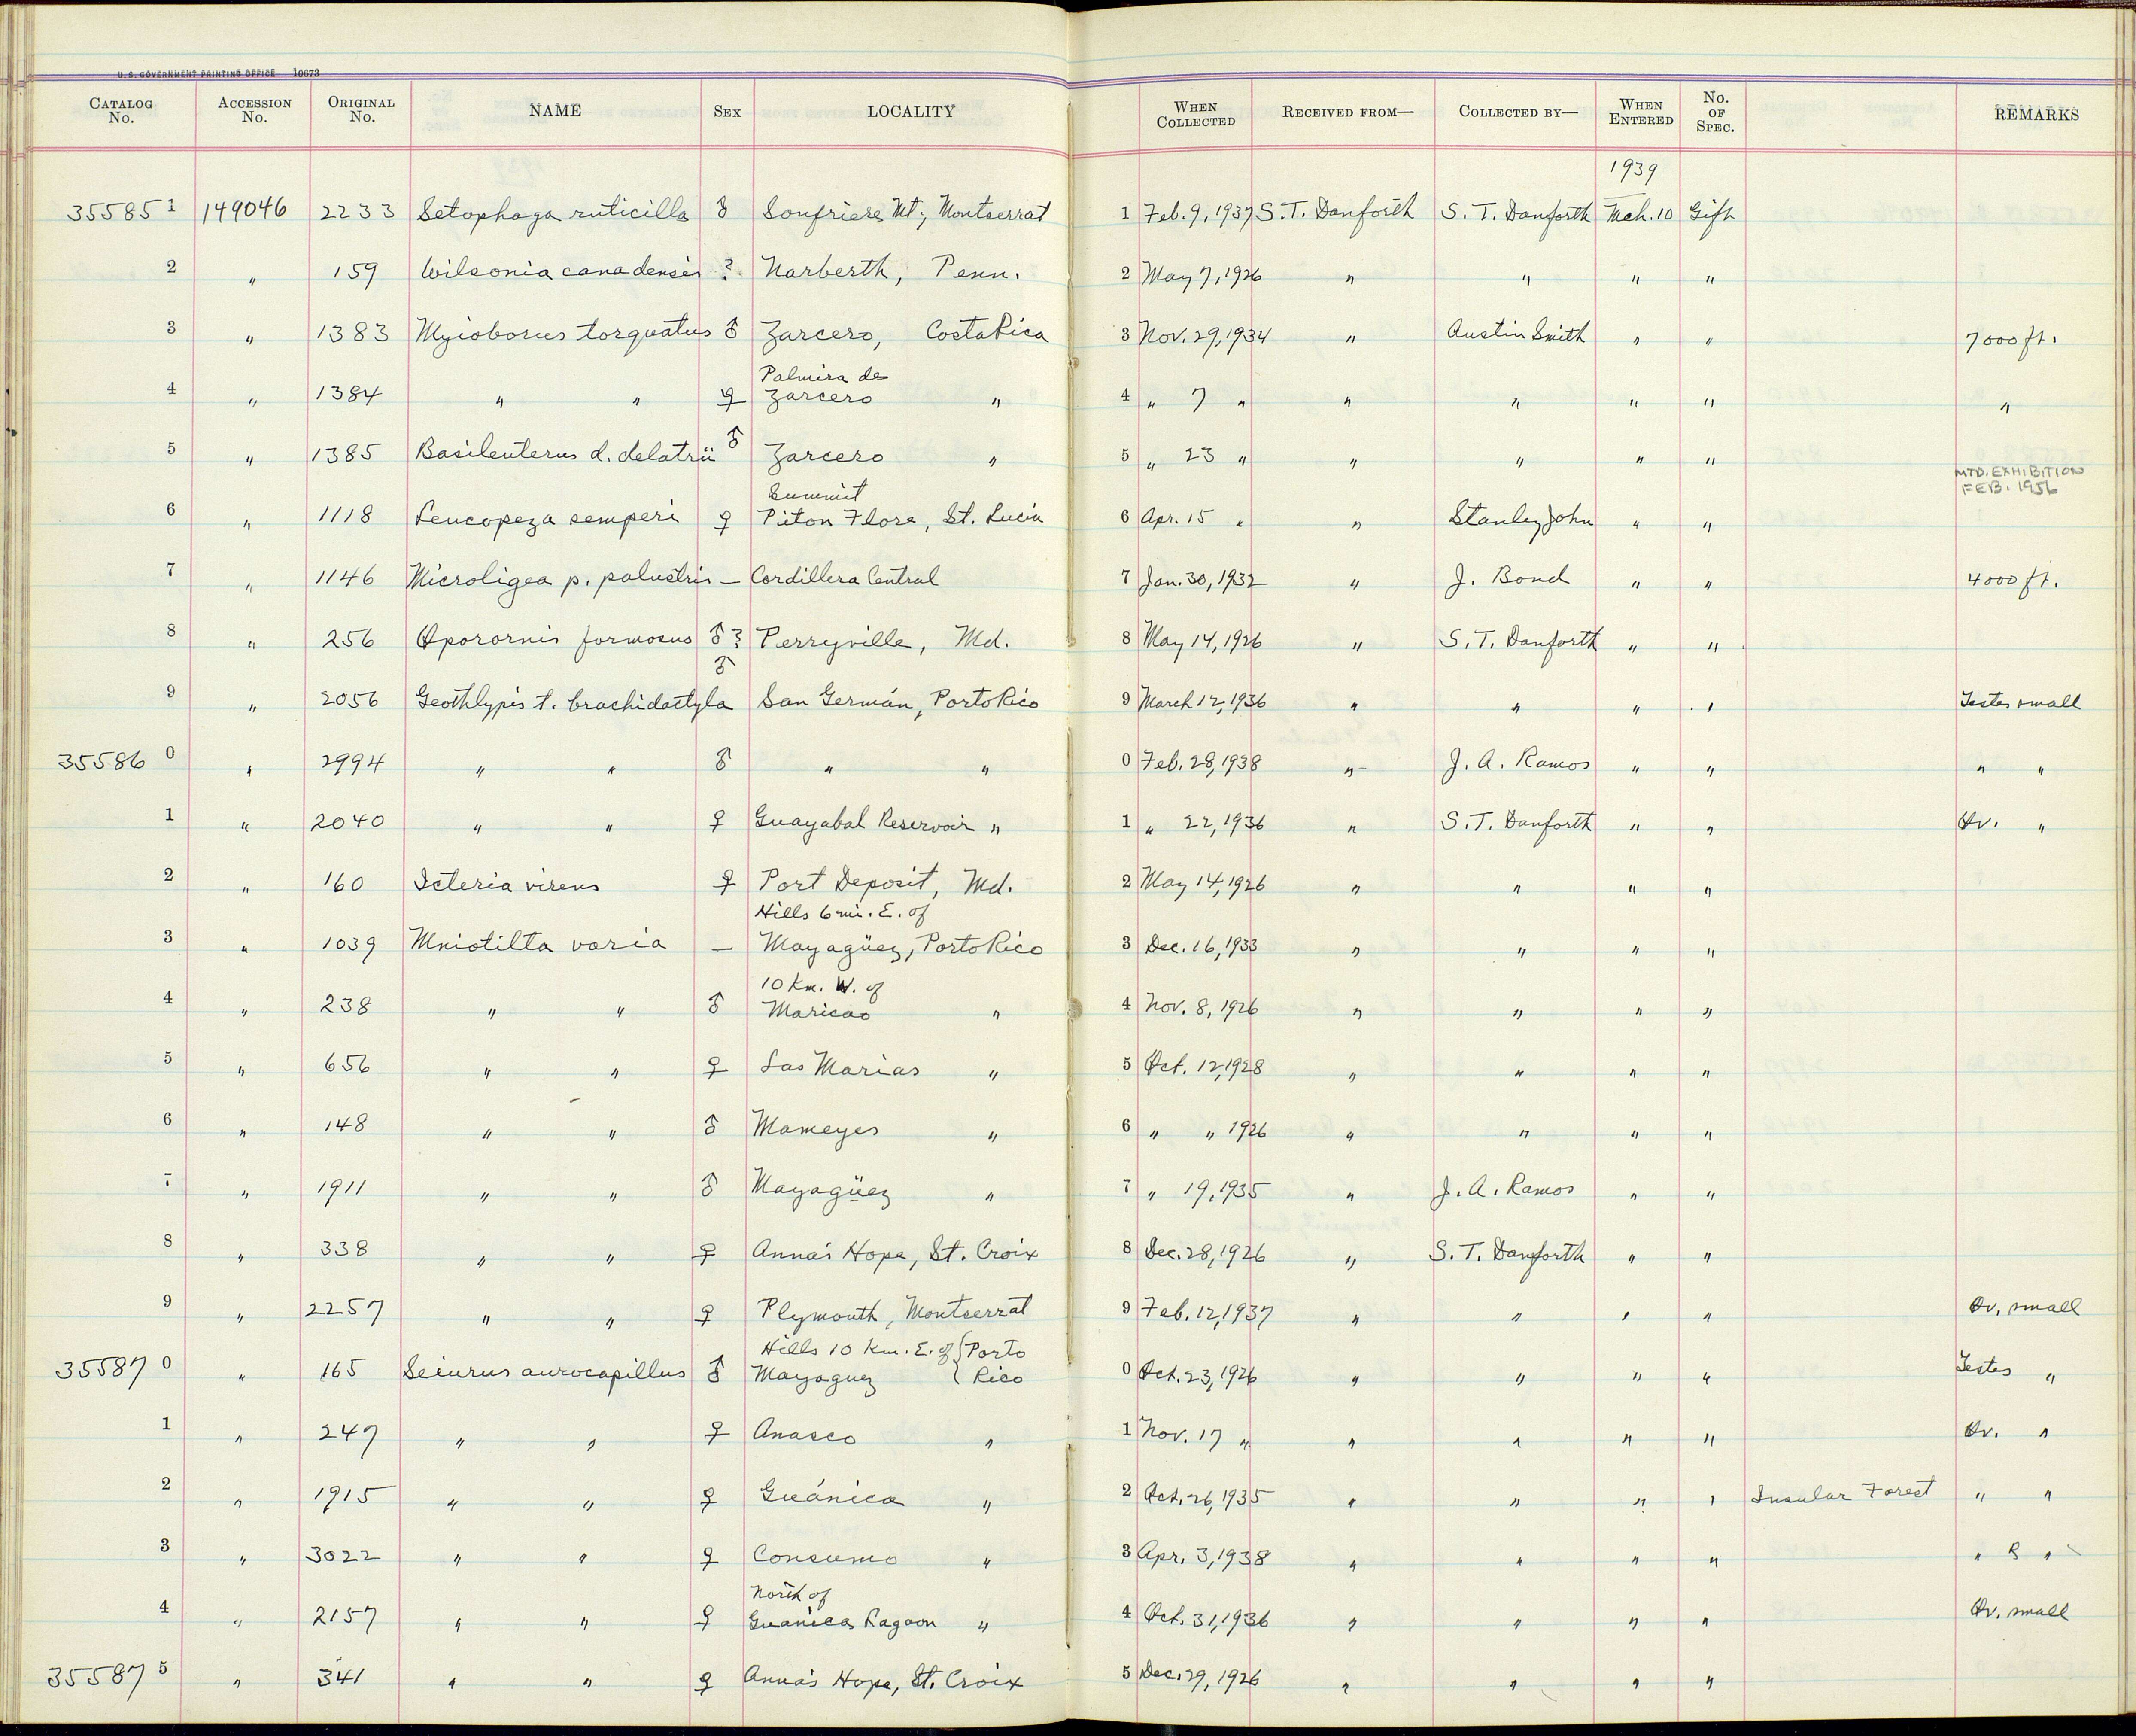 U.S. GOVERNMENT PRINTING OFFICE 10673
CATALOG No. ACCESSION No. ORIGINAL No. NAME SEX LOCALITY WHEN COLLECTED RECEIVED FROM— COLLECTED BY— WHEN ENTERED No. OF SPEC. REMARKS
1939
35585 1 149046 2233 Setophaga ruticilla ♂ Soufriere Mt; Montserrat 1 Feb. 9, 1937 S. T. Danforth S. T. Danforth Mch. 10 Gift
2 " 159 Wilsonia canadensis ? Narberth, Penn. 2 May 7, 1926 " " " "
3 " 1383 Myioborus torquatus ♂ Zarcero, Costa Rica 3 Nov. 29, 1934 " Austin Smith " " 7000 ft.
4 " 1384 " " ♀ Palmira de Zarcero " 4 " 7 " " " " " "
5 " 1385 Basileuterus d. delatrii ♂ Zarcero " 5 " 23 " " " " "
MTD. EXHIBITION FEB. 1956
6 " 1118 Leucopeza semperi ♀ Summit Piton Flore, St. Lucia 6 Apr. 15 " " Stanley John " "
7 " 1146 Microligea p. palustris — Cordillera Central 7 Jan. 30, 1932 " J. Bond " " 4000 ft.
8 " 256 Oporornis formosus ♂? Perryville, Md. 8 May 14, 1926 " S. T. Danforth " "
9 " 2056 Geothlypis t. brachidactyla ♂ San Germán, Porto Rico 9 March 12, 1936 " " " " Testes small
35586 0 " 2994 " " ♂ " " 0 Feb. 28, 1938 " J. A. Ramos " " " "
1 " 2040 " " ♀ Guayabal Reservoir " 1 " 22, 1936 " S. T. Danforth " " Ov. "
2 " 160 Icteria virens ♀ Port Deposit, Md. 2 May 14, 1926 " " " "
3 " 1039 Mniotilta varia — Hills 6 mi. E. of Mayagüez, Porto Rico 3 Dec. 16, 1933 " " " "
4 " 238 " " ♂ 10 Km. W. of Maricao " 4 Nov. 8, 1926 " " " "
5 " 656 " " ♀ Las Marias " 5 Oct. 12, 1928 " " " "
6 " 148 " " ♂ Mameyes " 6 " " 1926 " " " "
7 " 1911 " " ♂ Mayagüez " 7 " 19, 1935 " J. A. Ramos " "
8 " 338 " " ♀ Anna's Hope, St. Croix 8 Dec. 28, 1926 " S. T. Danforth " "
9 " 2257 " " ♀ Plymouth, Montserrat 9 Feb. 12, 1937 " " " " Ov. small
35587 0 " 165 Seiurus aurocapillus ♂ Hills 10 Km. E. of Mayaguez { Porto Rico 0 Oct. 23, 1926 " " " " Testes "
1 " 247 " " ♀ Anasco " 1 Nov. 17 " " " " " Ov. "
2 " 1915 " " ♀ Guánica " 2 Oct. 26, 1935 " " " " Insular Forest " "
3 " 3022 " " ♀ Consumo " 3 Apr. 3, 1938 " " " " " "
4 " 2157 " " ♀ North of Guanica Lagoon " 4 Oct. 31, 1936 " " " " Ov. small
35587 5 " 341 " " ♀ Anna's Hope, St. Croix 5 Dec. 29, 1926 " " " "